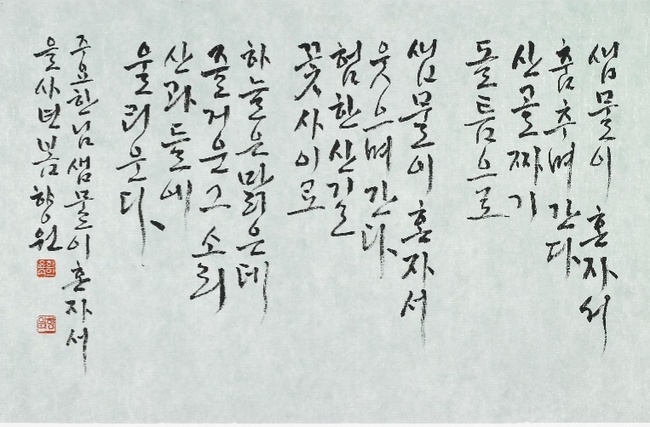 샘물이 혼자서
춤추며 간다
산골짜기
돌틈으로
샘물이 혼자서
웃으며 간다
험한산길
꽃사이로
하늘은 맑은데
즐거운 그 소리
산과 들에
울리운다
주요한님 샘물이 혼자서
을사년봄 향원